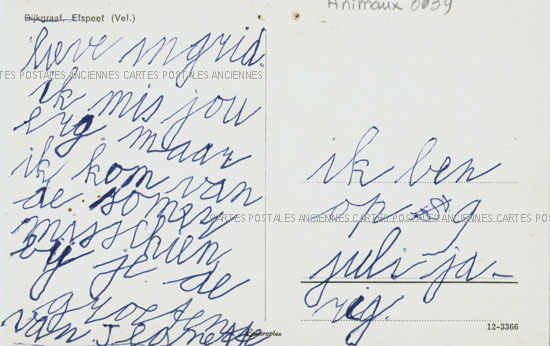 Animaux 0059
Dijkgraaf, Elspeet (Vel.)
lieve ingrid.
ik mis jou
erg maar
ik kom van
de somer
misschien
bij je de
groeten
van Jeanette
CARTES POSTALES ANCIENNES CARTES POSTALES ANCIENNES
CARTES POSTALES ANCIENNES CARTES POSTALES ANCIENNES
ik ben
op
juli-ja-
rig.
12-3366